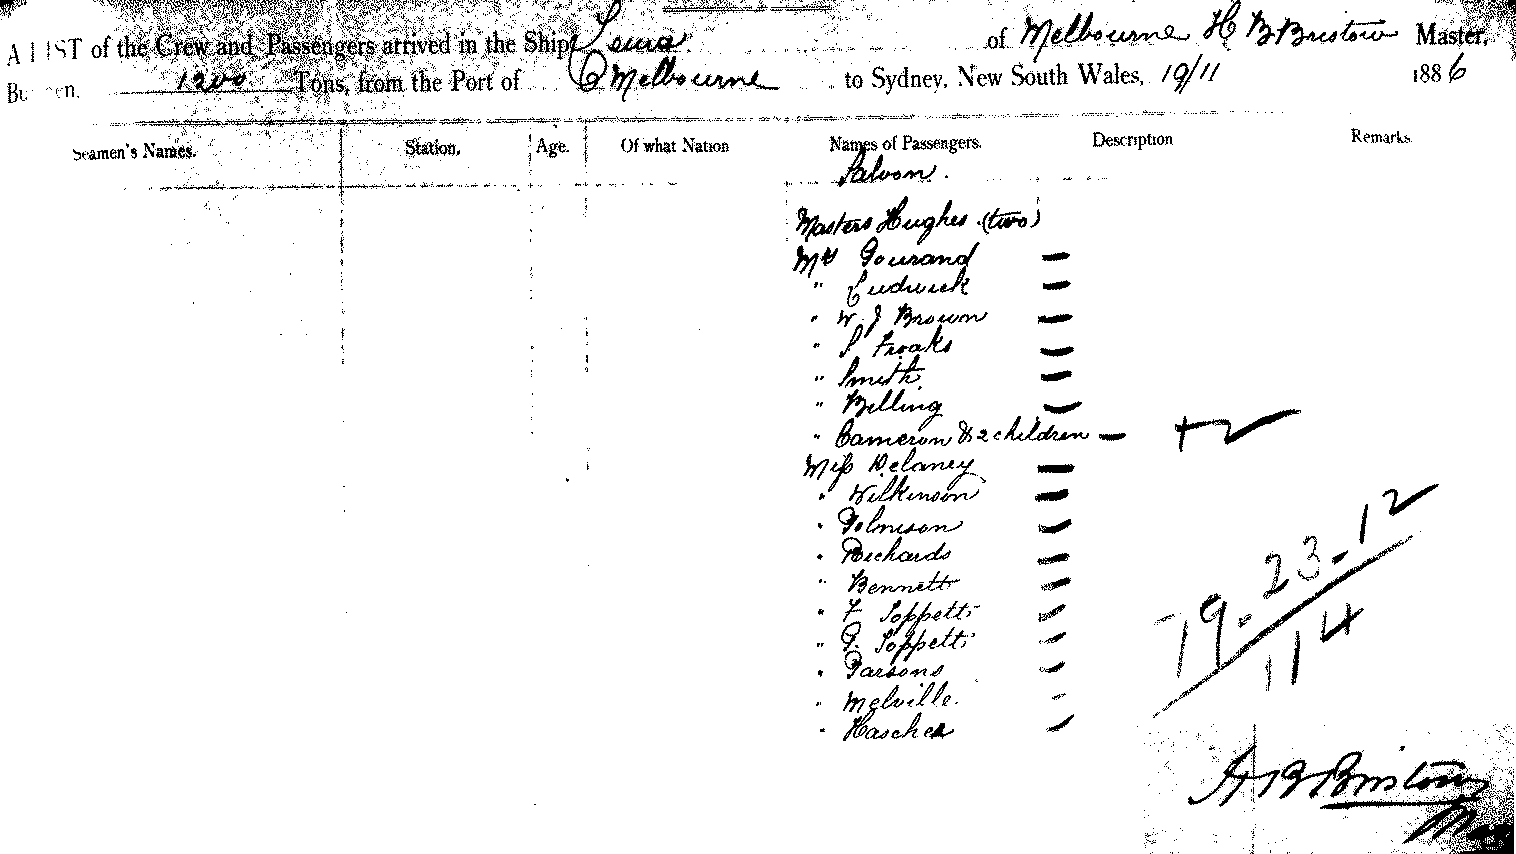 A LIST of the Crew and Passengers arrived in the Ship of Melbourne H B Bristow Master,
1200 Tons, from the Port of Melbourne to Sydney, New South Wales, 19/11 1886
Seamen's Names. Station. Age. Of what Nation Names of Passengers. Description Remarks.
Saloon.
Masters Hughes (two)
Mrs Gourand
" Ludwick
" W. J Brown
" S Froaks
" Smith
" Billing
" Cameron & 2 children
Miss Delaney
" Wilkinson
" Richards
" Bennett
" F Soppett
" G. Soppett
" Parsons
" Melville.
79-23-12
114
H B Bristow